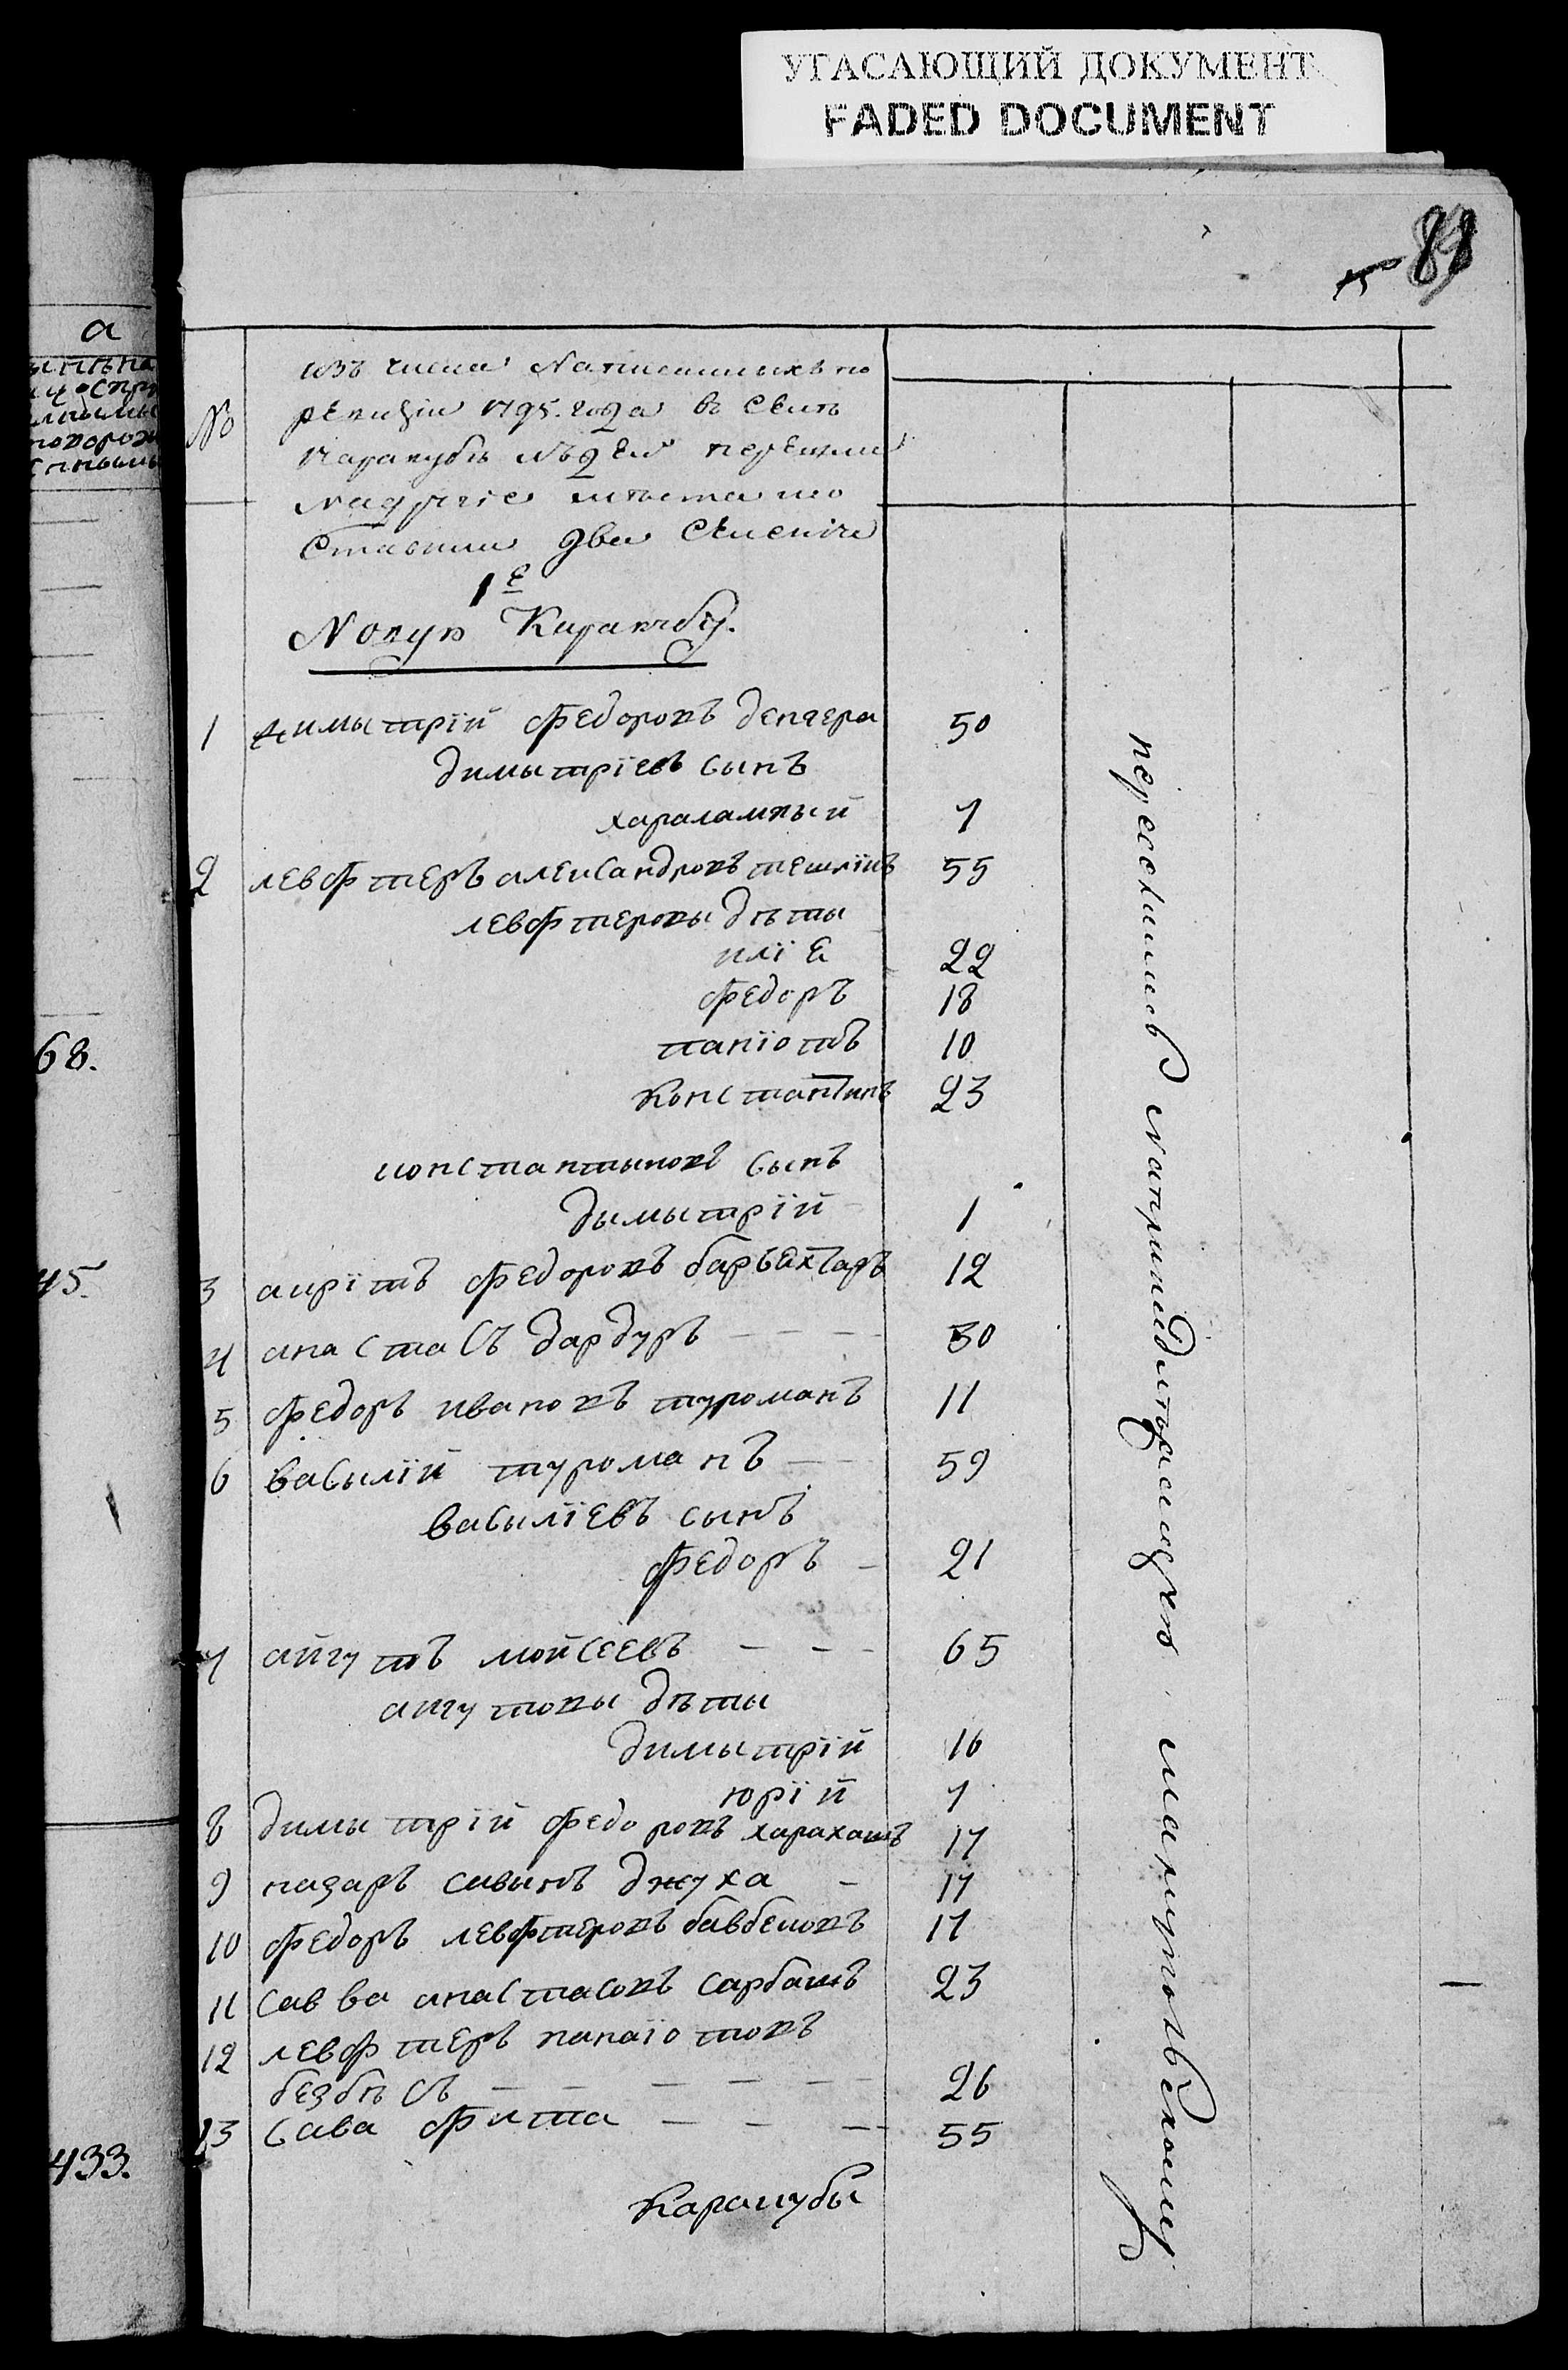 УГАСАЮЩИЙ ДОКУМЕНТ
FADED DOCUMENT
88
а
№
изъ числа написанныхъ по
ревизіи 1795. года въ селѣ
Каракубѣ людей перешли
на другіе мѣста и со
ставили два селенія
1е
Новую Каракубу.
1 димытрій федоровъ депчера 50
димытріевъ сынъ
харалампый 7
2 левфтеръ александровъ тешлїивъ 55
левфтеровы дѣты
илїе 22
федоръ 18
панїотъ 10
константинъ 23
константыновъ сынъ
дымытрїй 1
3 кирїтъ федоровъ барьяхтаръ 12
4 анастасъ дардуръ 30
5 федоръ ивановъ туроманъ 11
6 васылїй туроманъ 59
васылїевъ сынъ
федоръ 21
7 айгутъ мойсеевъ 65
айгутовы дѣты
димытрїй 16
юрїй 7
8 димытрїй федоровъ харахашъ 17
9 назаръ савынъ джуха 17
10 федоръ левфтеровъ бавбековъ 17
11 савва анастасовъ сарбашъ 23
12 левфтеръ панаїотовъ
безбѣсъ 26
13 сава фита 55
Каракубы
68.
45.
433.